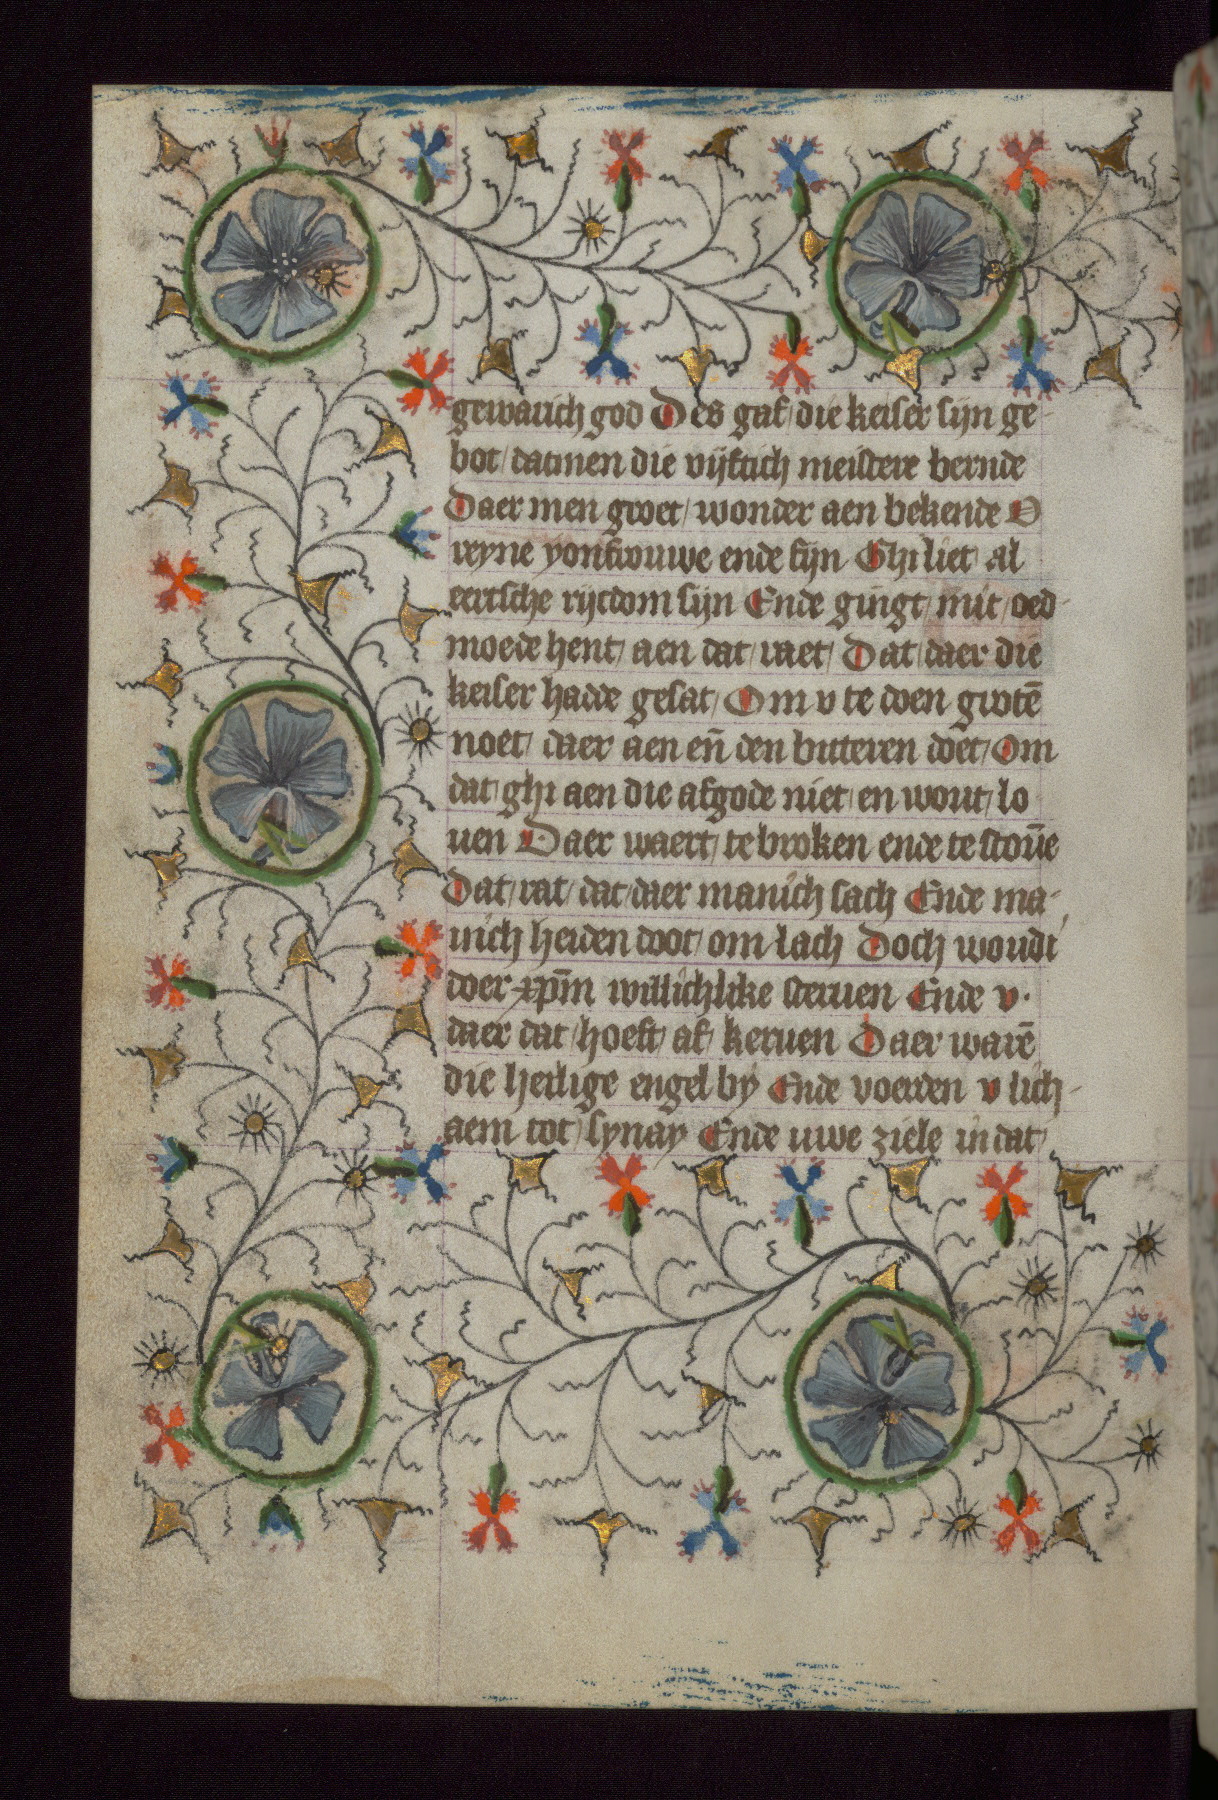 gewarich god Des gaf die keiser sijn ge
bot datmen die vijftich meistere bernde
Daer men groet wonder aen bekende O
reyne yonfrouwe ende fijn Ghi liet al
eertsche rijcdom sijn Ende gingt mit oed
moede hent aen dat raet Dat daer die
keiser hadde gesat Om v te doen grotē
noet daer aen eñ den bitteren doet Om
dat ghi aen die afgode niet en wout lo
uen Daer waert tebroken ende testoūe
Dat rat dat daer manich sach Ende ma-
nich heiden doot om lach Doch woudi
doer xp̄m willichlike steruen Ende v.
daer dat hoeft af keruen Daer warē
die heilige engel by Ende voerden v lich-
aem tot synay Ende uwe ziele in dat